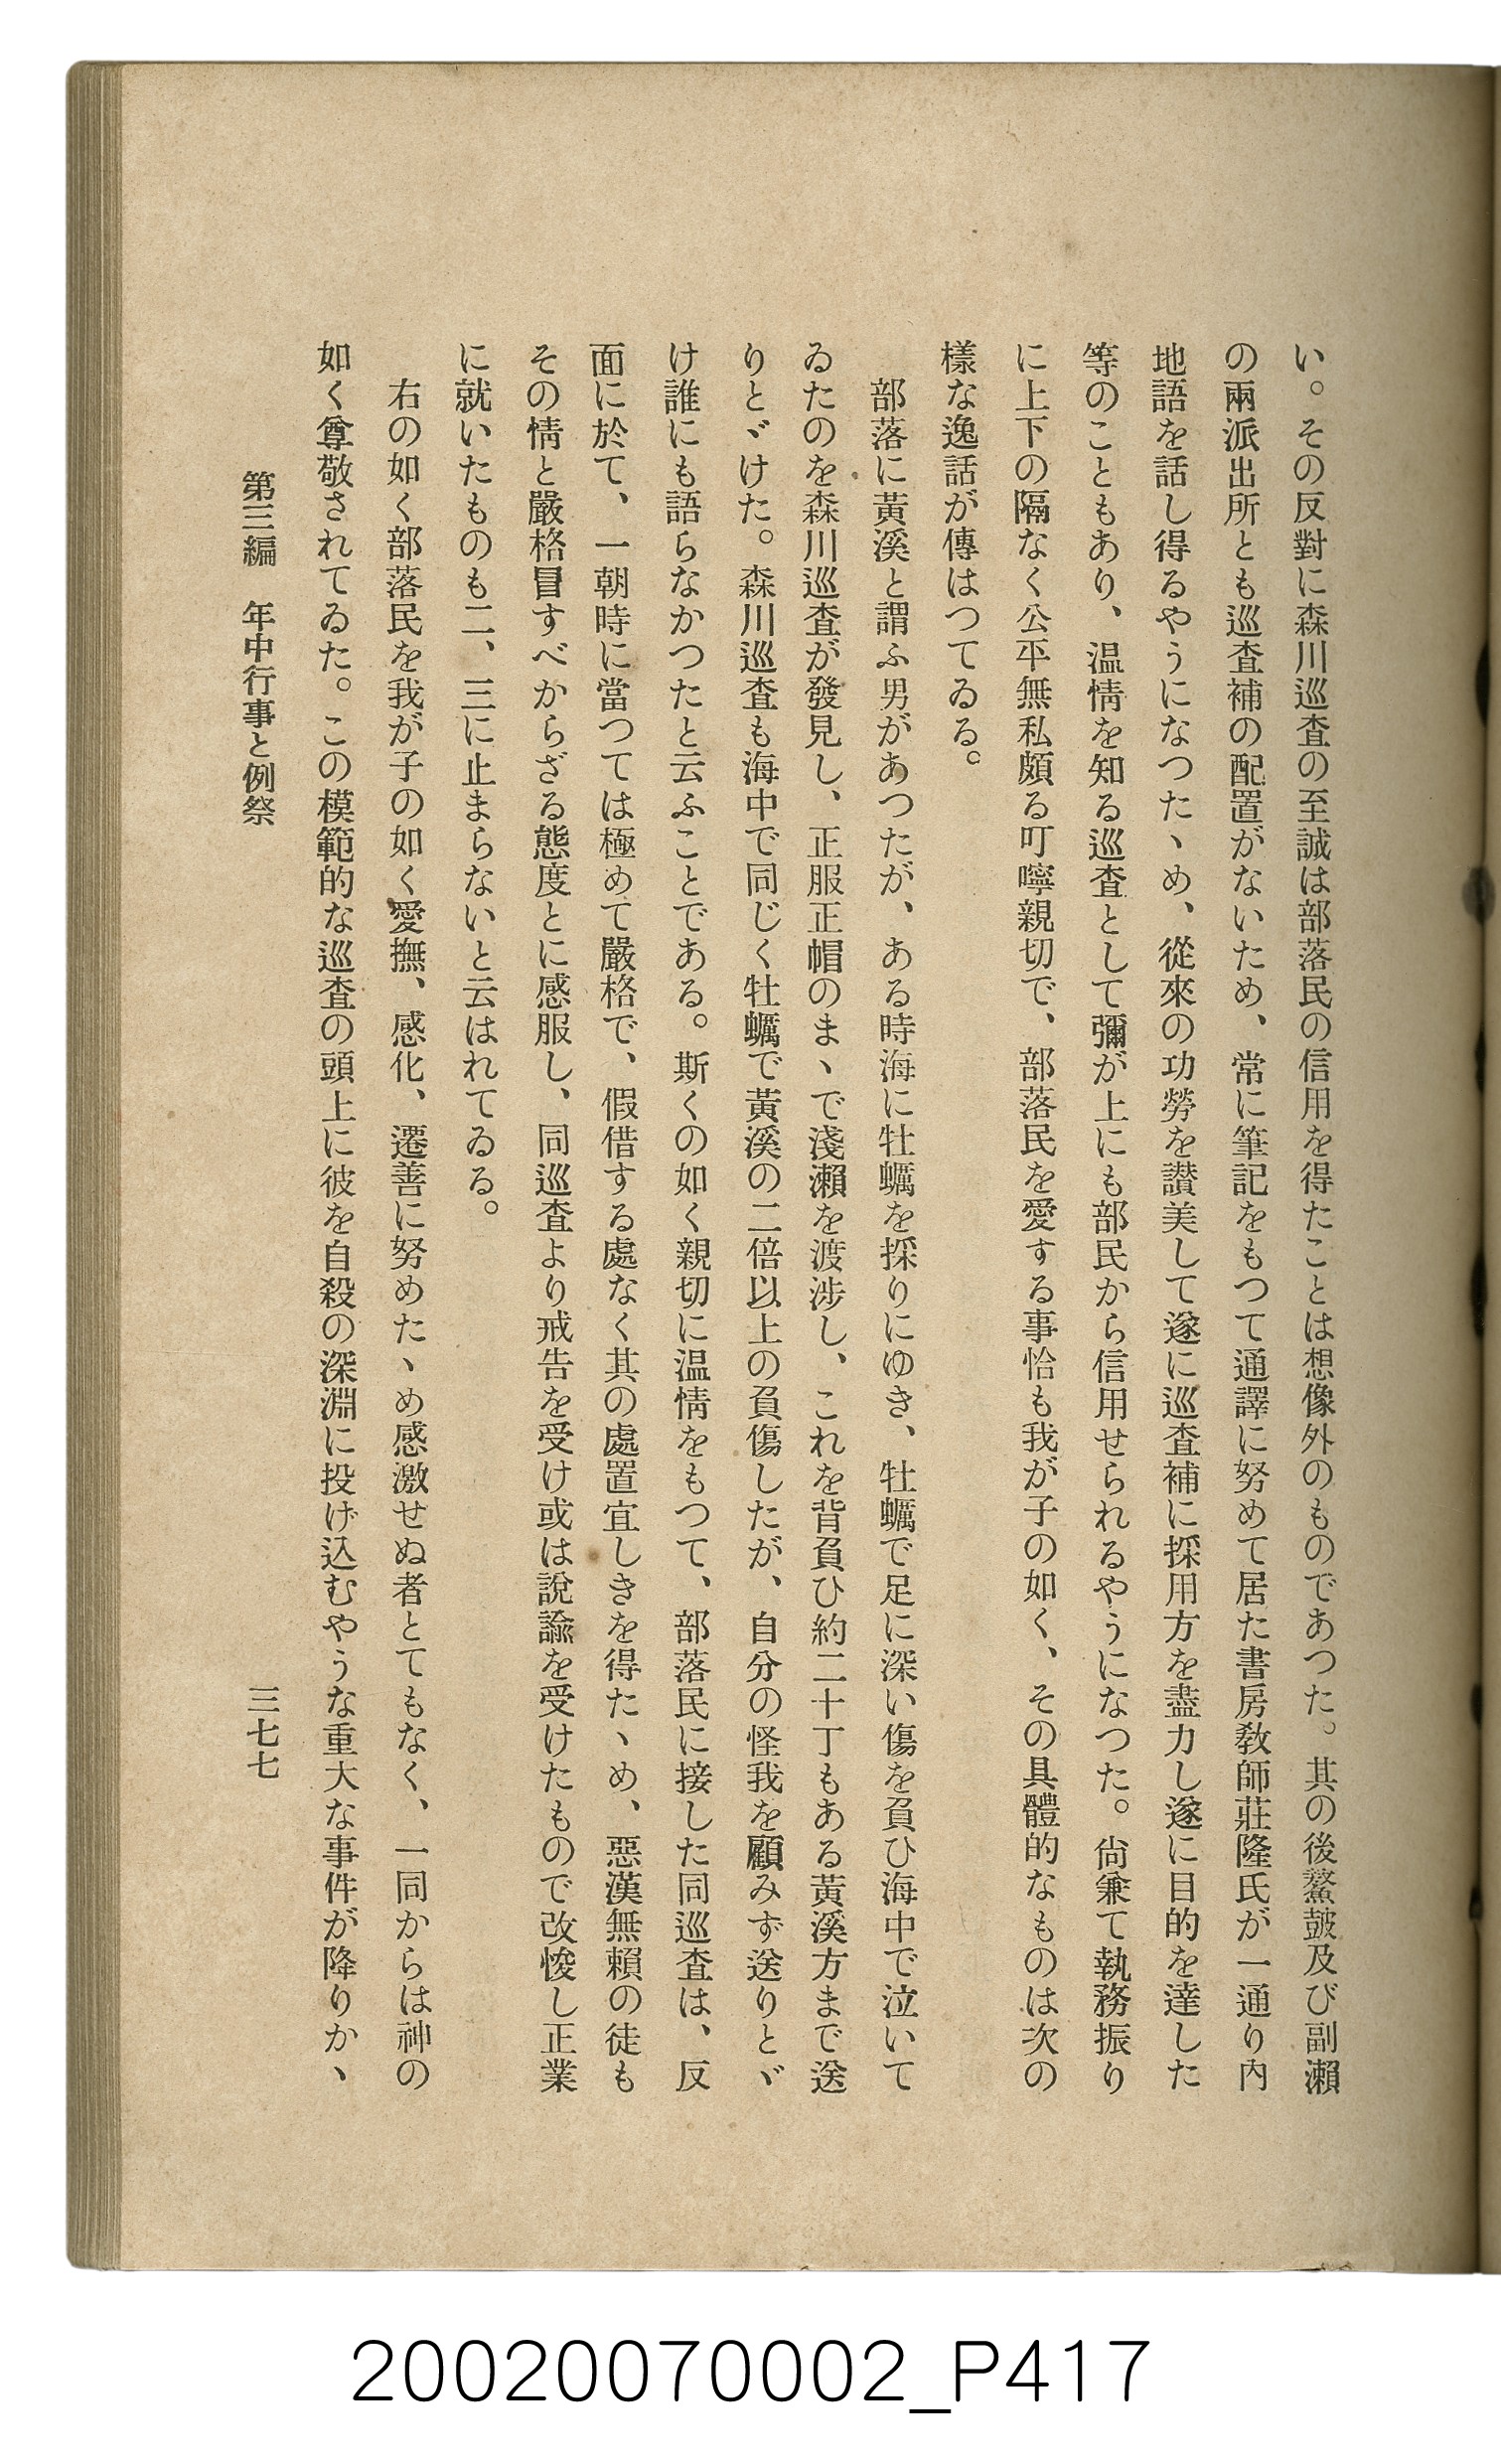 い。その反對に森川巡査の至誠は部落民の信用を得たことは想像外のものであつた。其の後鰲鼓及び副瀨
の兩派出所とも巡査補の配置がないため、常に筆記をもつて通譯に努めて居た書房敎師莊隆氏が一通り內
地語を話し得るやうになつたヽめ、從來の功勞を讃美して遂に巡査補に採用方を盡力し遂に目的を達した
等のこともあり、温情を知る巡査として彌が上にも部民から信用せられるやうになつた。尙兼て執務振り
に上下の隔なく公平無私頗る叮嚀親切で、部落民を愛する事恰も我が子の如く、その具體的なものは次の
樣な逸話が傳はつてゐる。
部落に黃溪と謂ふ男があつたが、ある時海に牡蠣を採りにゆき、牡蠣で足に深い傷を負ひ海中で泣いて
ゐたのを森川巡査が發見し、正服正帽のまヽで淺瀨を渡涉し、これを背負ひ約二十丁もある黃溪方まで送
りとヾけた。森川巡査も海中で同じく牡蠣で黃溪の二倍以上の負傷したが、自分の怪我を顧みず送りとヾ
け誰にも語らなかつたと云ふことである。斯くの如く親切に温情をもつて、部落民に接した同巡査は、反
面に於て、一朝時に當つては極めて嚴格で、假借する處なく其の處置宜しきを得たヽめ、惡漢無賴の徒も
その情と嚴格冒すべからざる態度とに感服し、同巡査より戒告を受け或は說諭を受けたもので改悛し正業
に就いたものも二、三に止まらないと云はれてゐる。
右の如く部落民を我が子の如く愛撫、感化、遷善に努めたヽめ感激せぬ者とてもなく、一同からは神の
如く尊敬されてゐた。この模範的な巡査の頭上に彼を自殺の深淵に投げ込むやうな重大な事件が降りかヽ
第三編　年中行事と例祭
三七七
20020070002_P417